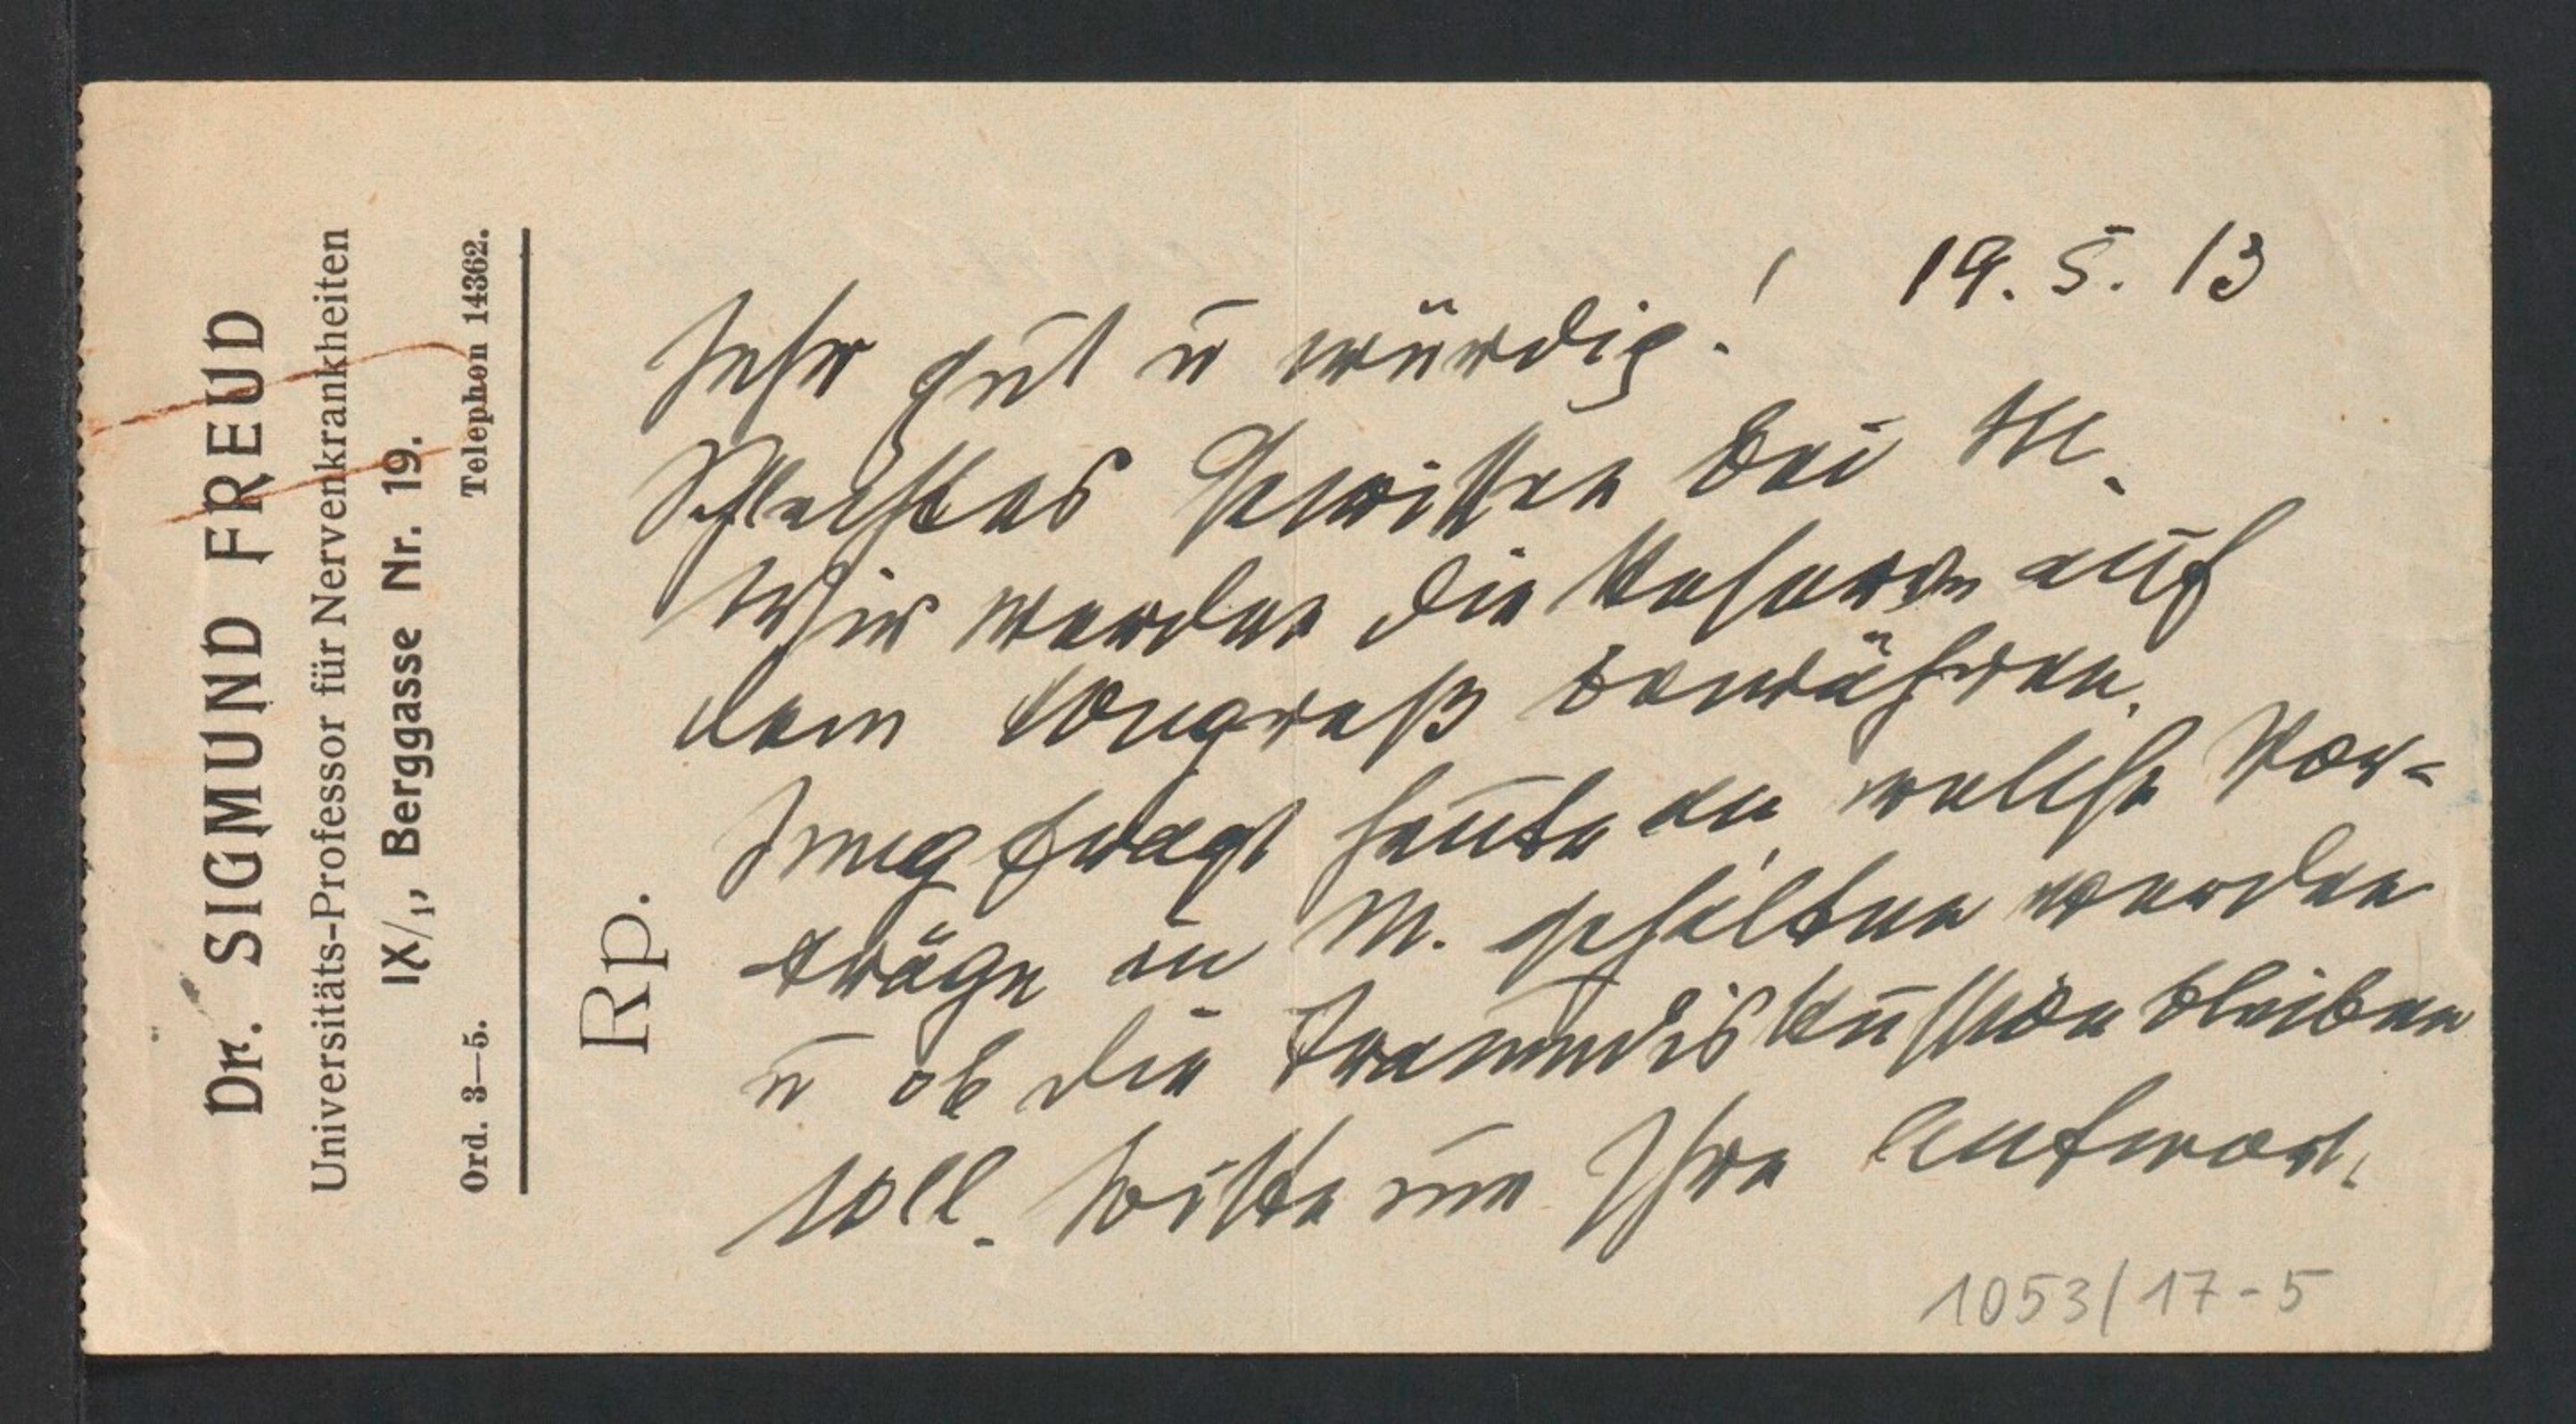 Dr. SIGMUND FREUD
Universitäts-Professor für Nervenkrankheiten
IX/1, Berggasse Nr. 19.
Ord. 3—5. Telephon 14362.
Rp.
19. 5. 13
Sehr gut u würdig!
Schlechtes Gewissen bei M.
Wir werden die Reserve auf
dem Kongreß bewähren.
Jung fragt heute an, welche Vor-
träge in M. gehalten werden
u ob die Traumdiskussion bleiben
soll. Bitte um Ihre Antwort.
1053/17-5